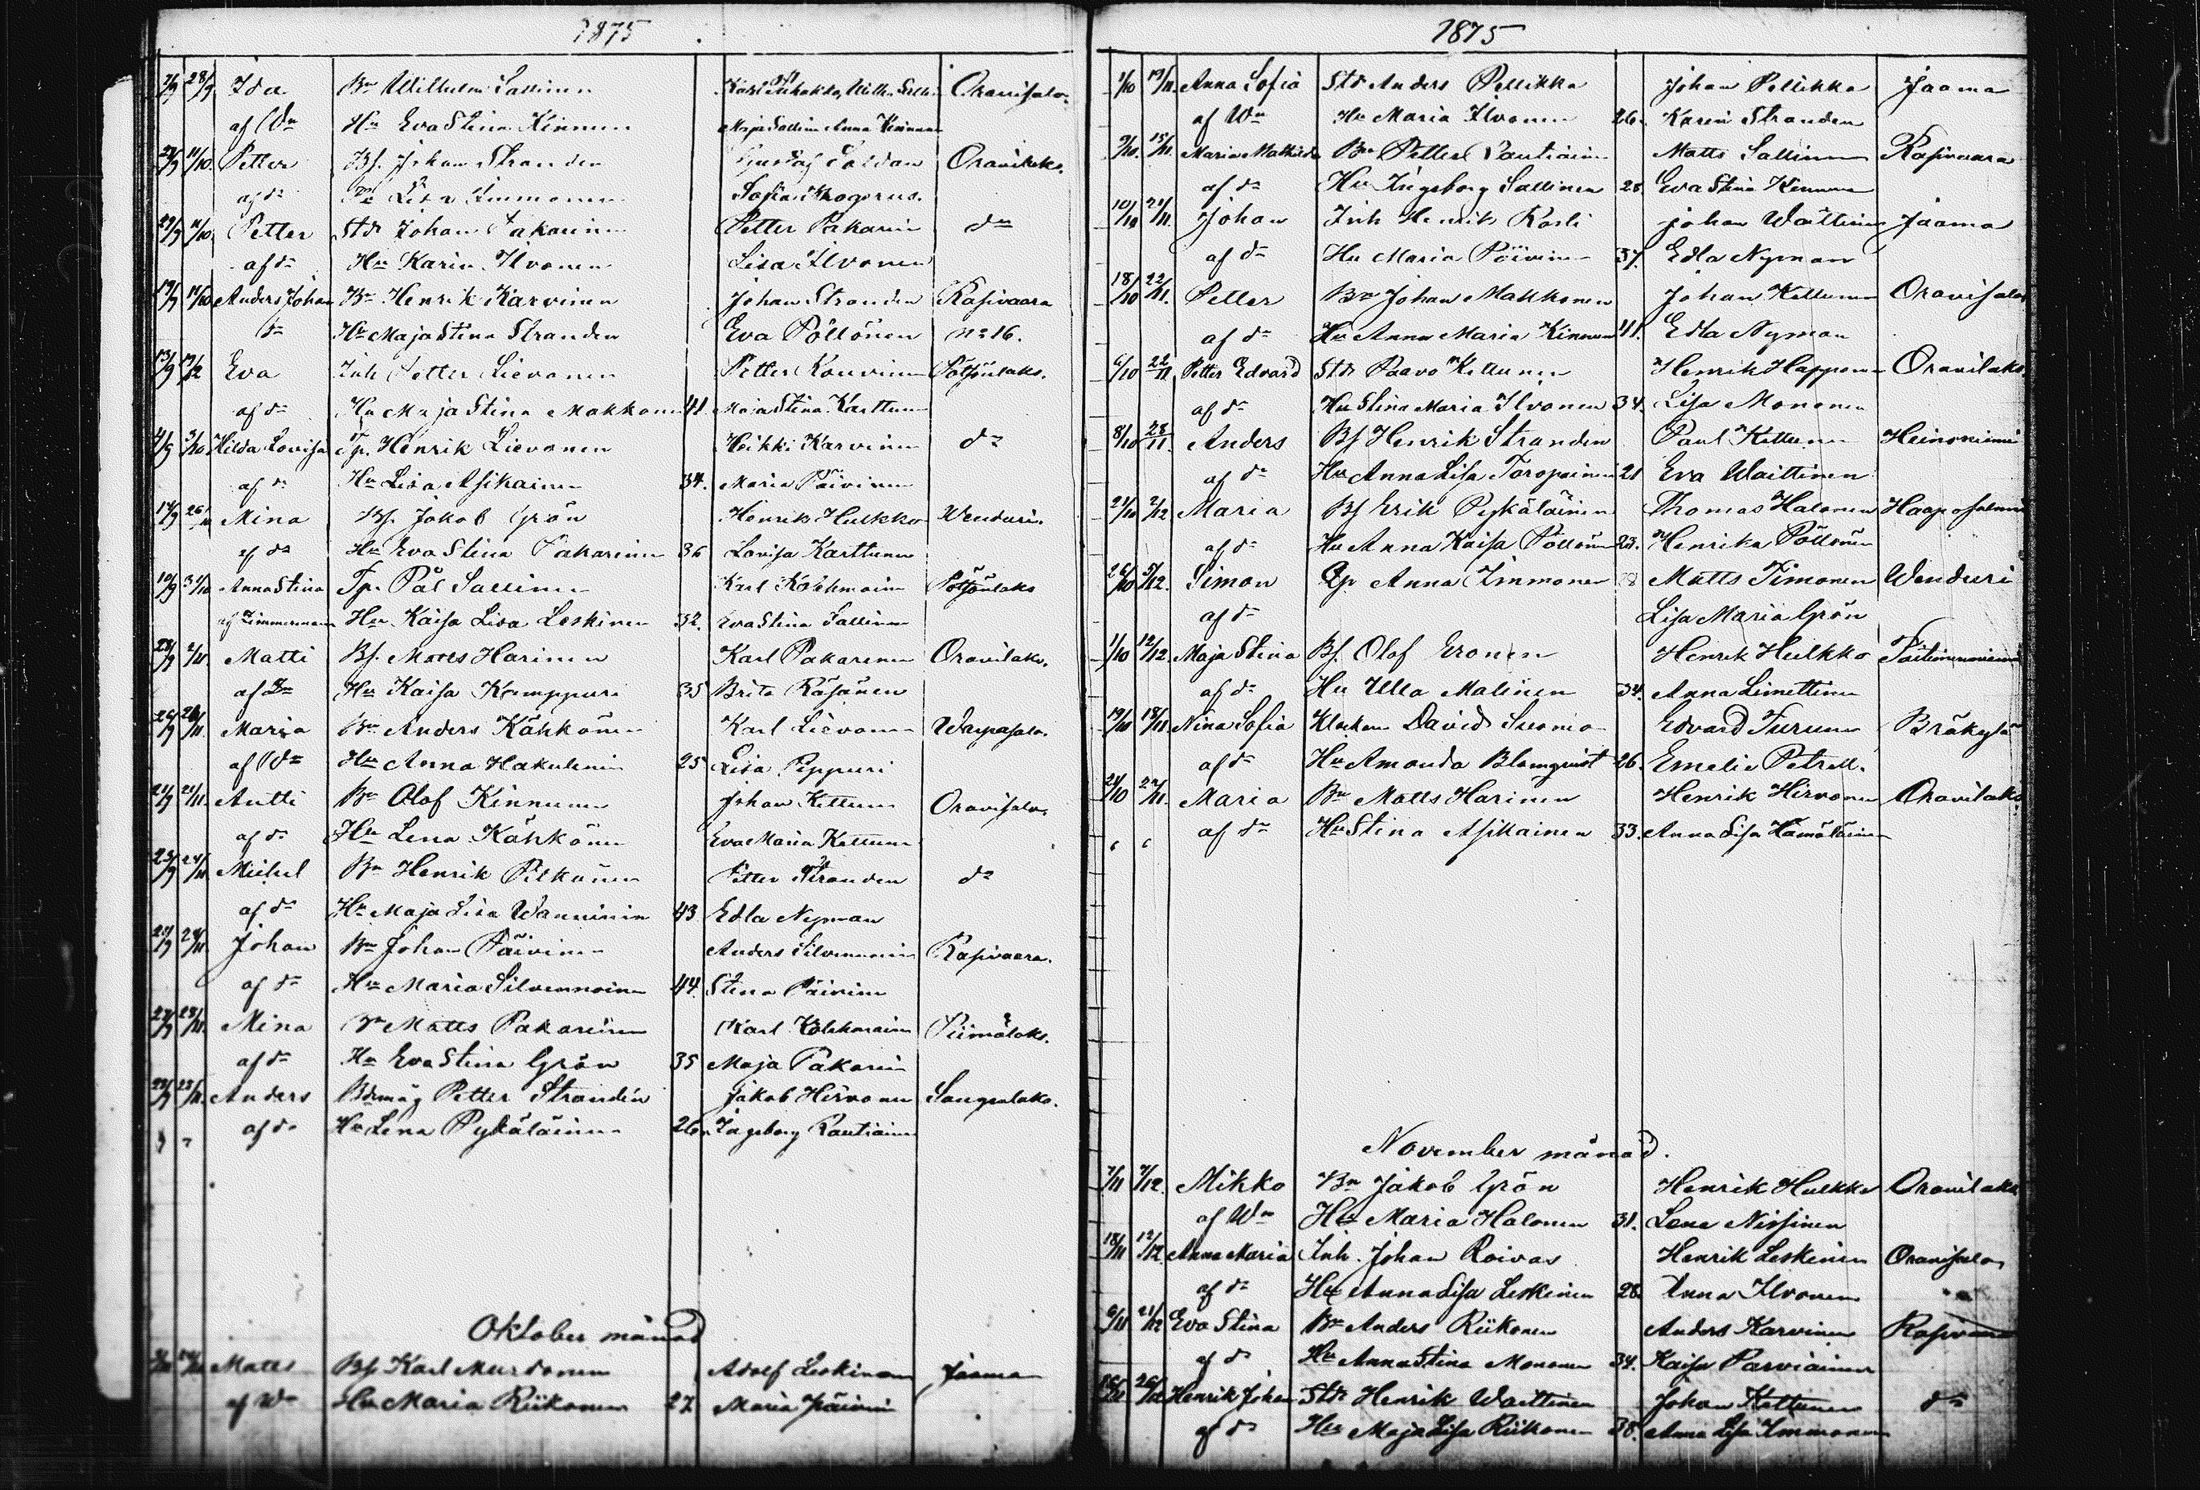 1875
7/9 28/9 Ida Bn Wilhelm Sallinen Oravisalo
af Wm Hu Eva Stina Kinnunen Maja Sallinen Anna Kinnunen
11/10 Petter Bs. Johan Stranden Gustaf Soldan Oravilaks.
af do Lisa Immonen Sofia Skogorus.
11/10 Petter Std Johan Pakarinen Petter Pakarin do
af do Hu Karin Ilvonen Lisa Ilvonen
11/10 Anders Johan Bn Henrik Karvinen Johan Stranden Rasivaara
do Hu Maja Stina Stranden Eva Pöllönen No 16.
13/9 Eva Inh Petter Lievonen Petter Kouvinen Pötsönlaks.
af do Hu Maja Stina Makkonen 41 Maja Stina Karttunen
4/9 3/10 Hilda Lovisa Tp. Henrik Lievonen Heikki Karvinen do
af do Hu Lisa Asikainen 34. Maria Päivinen
Mina Bs. Jakob Grön Henrik Hulkko Wenduri.
af do Hu Eva Stina Pakarinen 36 Lovisa Karttunen
10/9 Anna Stina Tp. Pål Sallinen Karl Kolehmain Pötsönlaks
af Timmerman Hu Kaisa Lisa Leskinen 32. Eva Stina Sallinen
Matti Bs. Matts Harinen Karl Pakarinen Oravilaks.
af do Hu Kaisa Kamppuri 35 Brita Räsänen
Maria Bn Anders Kähkönen Karl Lievonen Warpasalo.
af Wm Hu Anna Hakulinen 25 Lisa Pippuri
21/9 21/11 Antti Bn Olof Kinnunen Johan Kettunen Oravisalo.
af do Hu Lena Kähkönen Eva Maria Kettunen
23/9 21/11 Mickel Bn Henrik Pitkänen Petter Stranden do
af do Hu Maja Lisa Wanninen 43 Edla Nyman
Johan Bn Johan Päivinen Anders Silvennoinen Rasivaara.
af do Hu Maria Silvennoinen 44. Stina Päivinen
Mina Bn Matts Pakarinen Karl Kolehmainen Piimälaks.
af do Hu Eva Stina Grön 35 Maja Pakarin
Anders Bdemåg Petter Stranden Jakob Hirvonen Sangenlaks.
af do Hu Lena Pykäläinen 26 Ingeborg Rautiainen
Oktober månad
Matts Bs. Karl Murtonen Adolf Leskinen Jaama
af Wm Hu Maria Riikonen 27 Maria Päivinen
1875
1/10 Anna Sofia Std Anders Pellikka Johan Pellikka Jaama
af Wm Hu Maria Ilvonen 26. Karin Stranden
9/10 15/11 Maria Mathilda Bn Petter Rautiainen Matts Sallinen Rasivaara
af do Hu Ingeborg Sallinen 28 Eva Stina Kinnunen
10/10 21/11 Johan Inh Henrik Kosli Johan Waittinen Jaama
af do Hu Maria Päivinen 37. Edla Nyman
18/10 22/11. Petter Bn Johan Makkonen Johan Kettunen Oravisalo
af do Hu Anna Maria Kinnunen 41. Edla Nyman
6/10 22/11 Petter Edvard Std Paavo Kettunen Henrik Happonen Oravilaks.
af do Hu Stina Maria Ilvonen 34. Lisa Mononen
8/10 28/11. Anders Bs Henrik Stranden Paul Kettunen Heinoniemi
af do Hu Anna Lisa Toropainen 21 Eva Waittinen
21/10 2/12 Maria Bs Erik Pykäläinen Thomas Halonen Haapasalmi
af do Hu Anna Kaisa Pöllönen 23. Henrika Pöllönen
26/10 5/12. Simon Qp Anna Immonen Matts Timonen Wenduri
af do Lisa Maria Grön
1/10 12/12 Maja Stina Bs. Olof Eronen Henrik Hulkko
af do Hu Ulla Malinen 34. Anna Limettinen
19/10 18/11 Nina Sofia Klockaren David Suomio Edvard Turunen Bräkylä
af do Hu Amanda Blomqvist 26. Emelie Petrell.
24/10 22/11. Maria Bn Matts Harinen Henrik Hirvonen Oravilaks
af do Hu Stina Asikainen 33. Anna Lisa Hämäläinen
November månad.
7/11 7/12. Mikko Bn Jakob Grön Henrik Hulkko Oravilaks
af Wm Hu Maria Halonen 31. Lena Nissinen
18/11 12/12. Anna Maria Inh. Johan Roivas Henrik Leskinen Oravisalo
af do Hu Anna Lisa Leskinen 28. Anna Ilvonen
6/11 21/12 Eva Stina Bn Anders Riikonen Anders Karvinen Rasivaara
af do Hu Anna Stina Mononen 34. Kaisa Parviainen
Henrik Johan Std Henrik Waittinen Johan Kettunen do
af do Hu Maja Lisa Riikonen 38. Anna Lisa Immonen